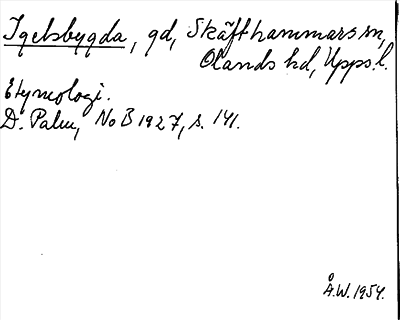 Igelsbygda, gd, Skäfthammars sn,
Olands hd, Upps. l.
Etymologi.
D. Palm, NoB 1927, s. 141.
Å.W. 1954.